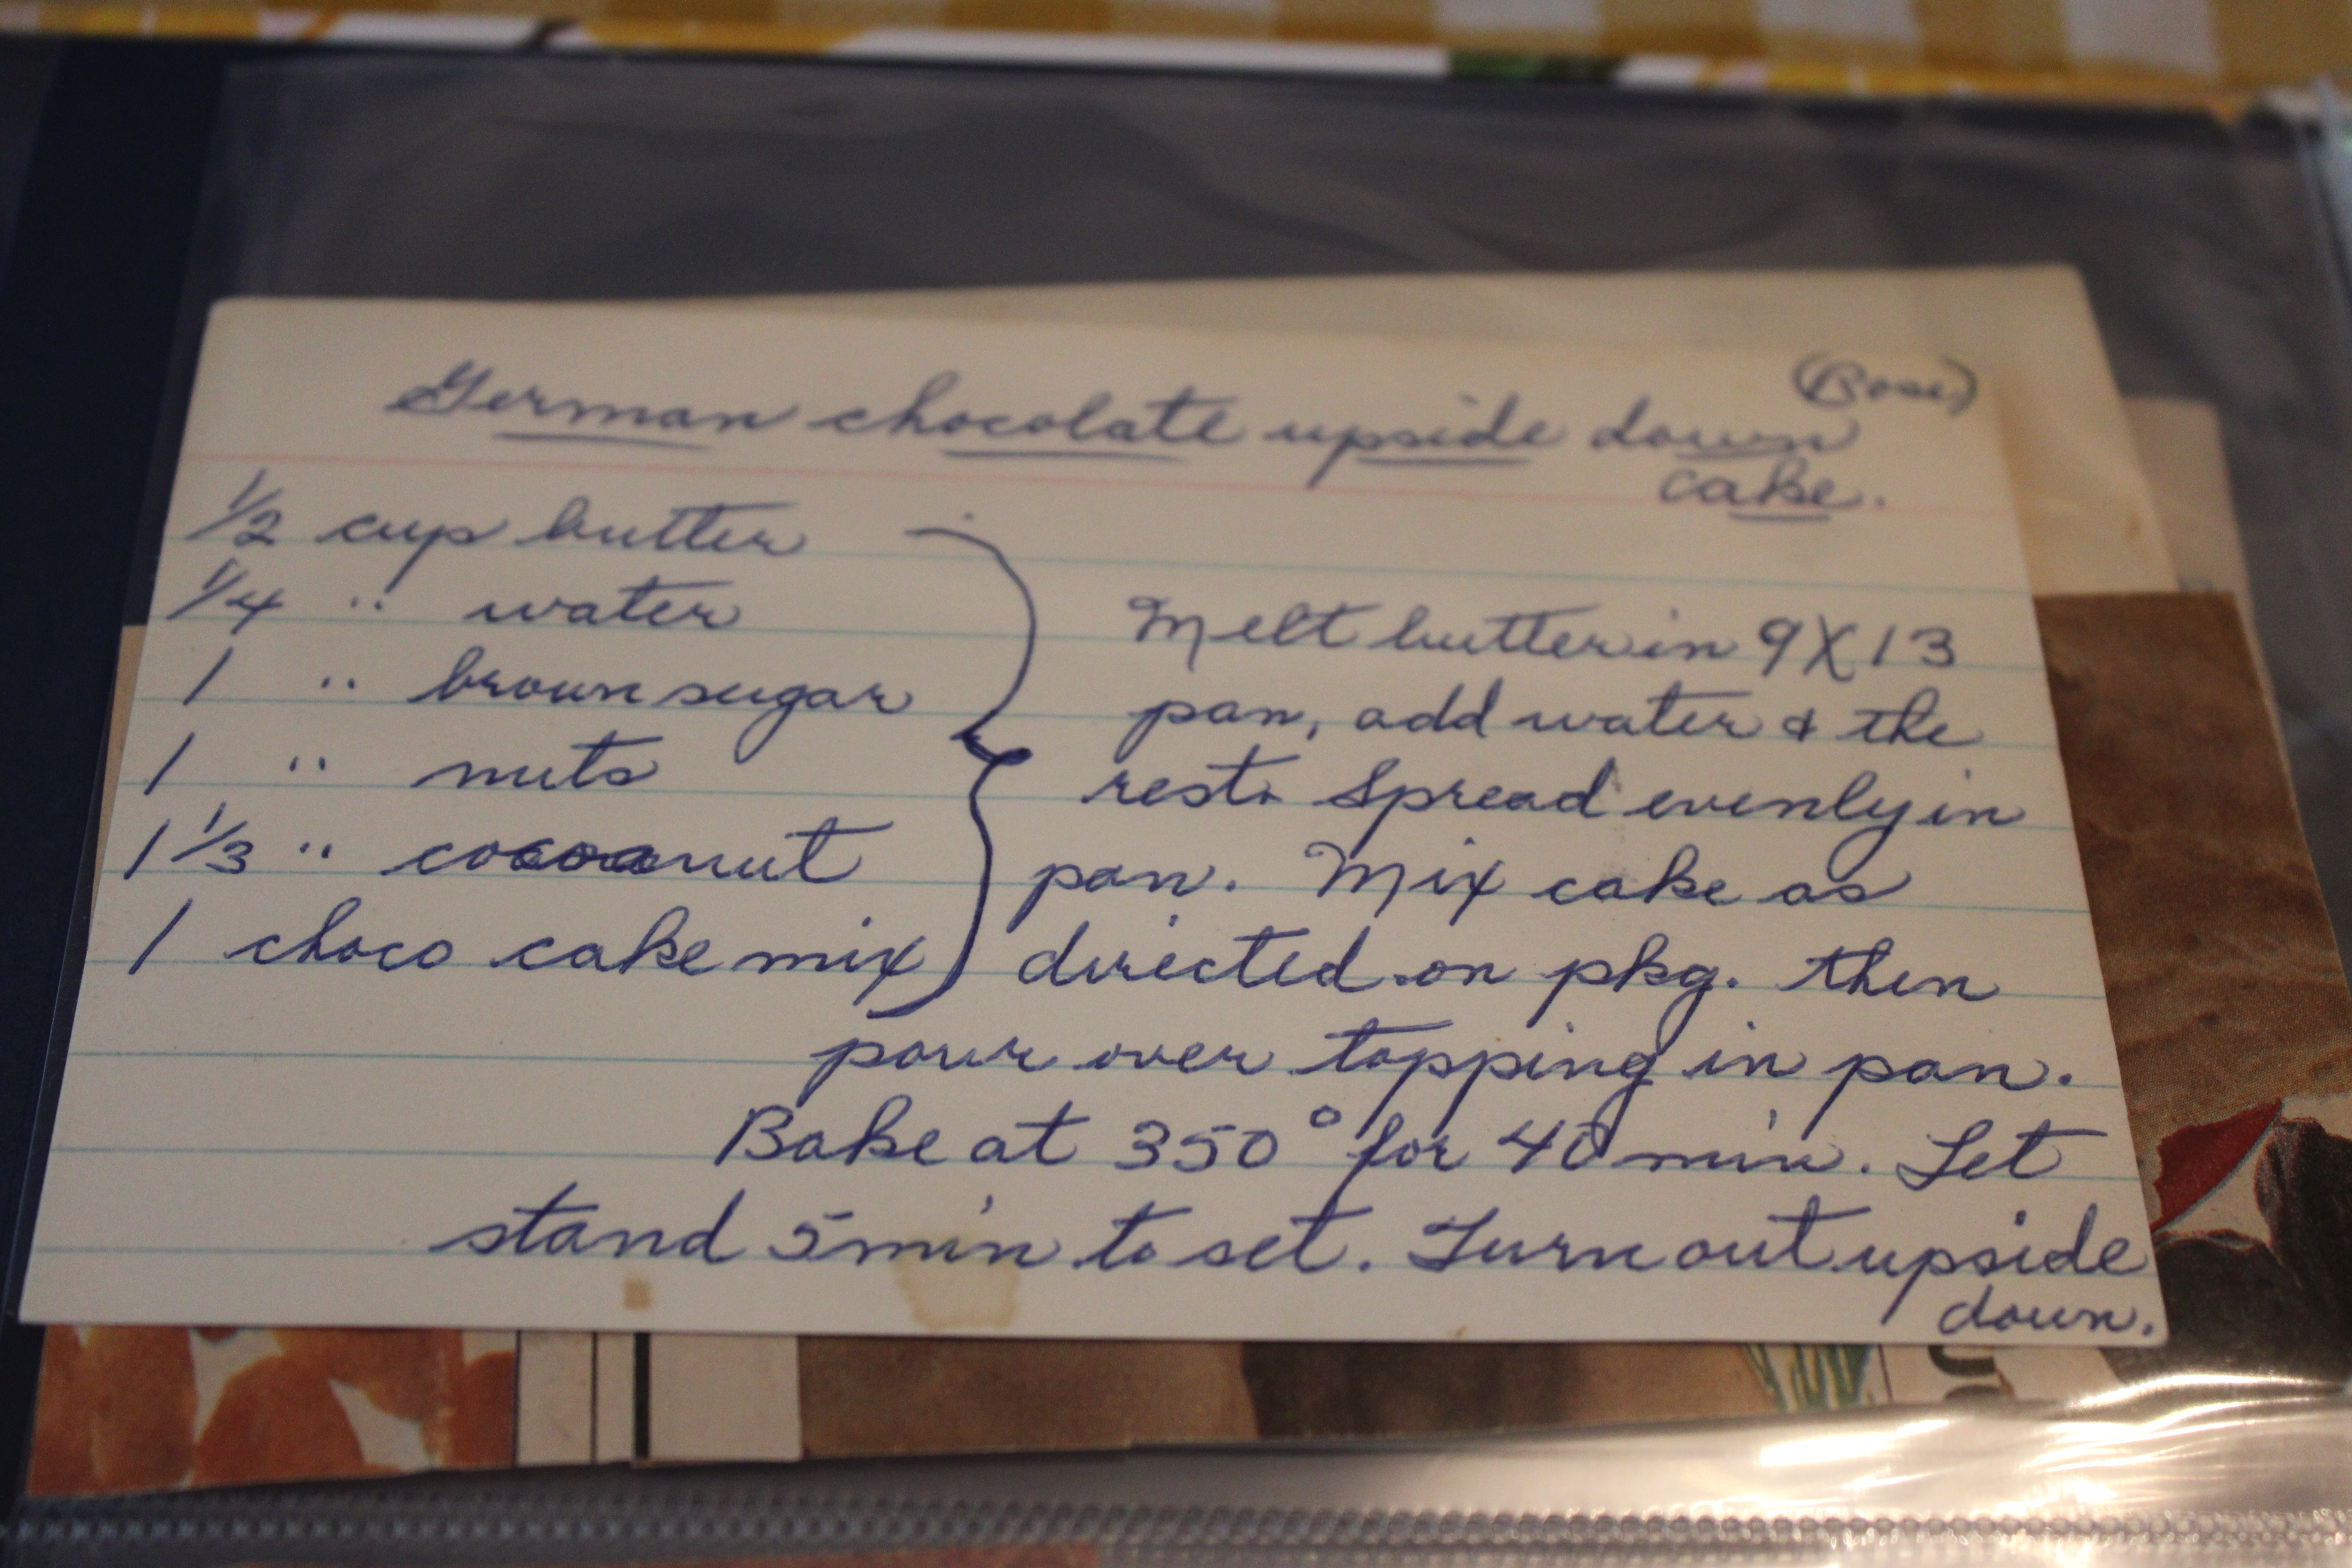 (Rose)
German chocolate upside down
cake.
1/2 cup butter
1/4 " water
1 " brown sugar
1 " nuts
1 1/3 " cocoanut
1 choco cake mix
Melt butter in 9X13
pan, add water & the
rest. Spread evenly in
pan. Mix cake as
directed on pkg. then
pour over topping in pan.
Bake at 350° for 40 min. Let
stand 5 min to set. Turn out upside
down.